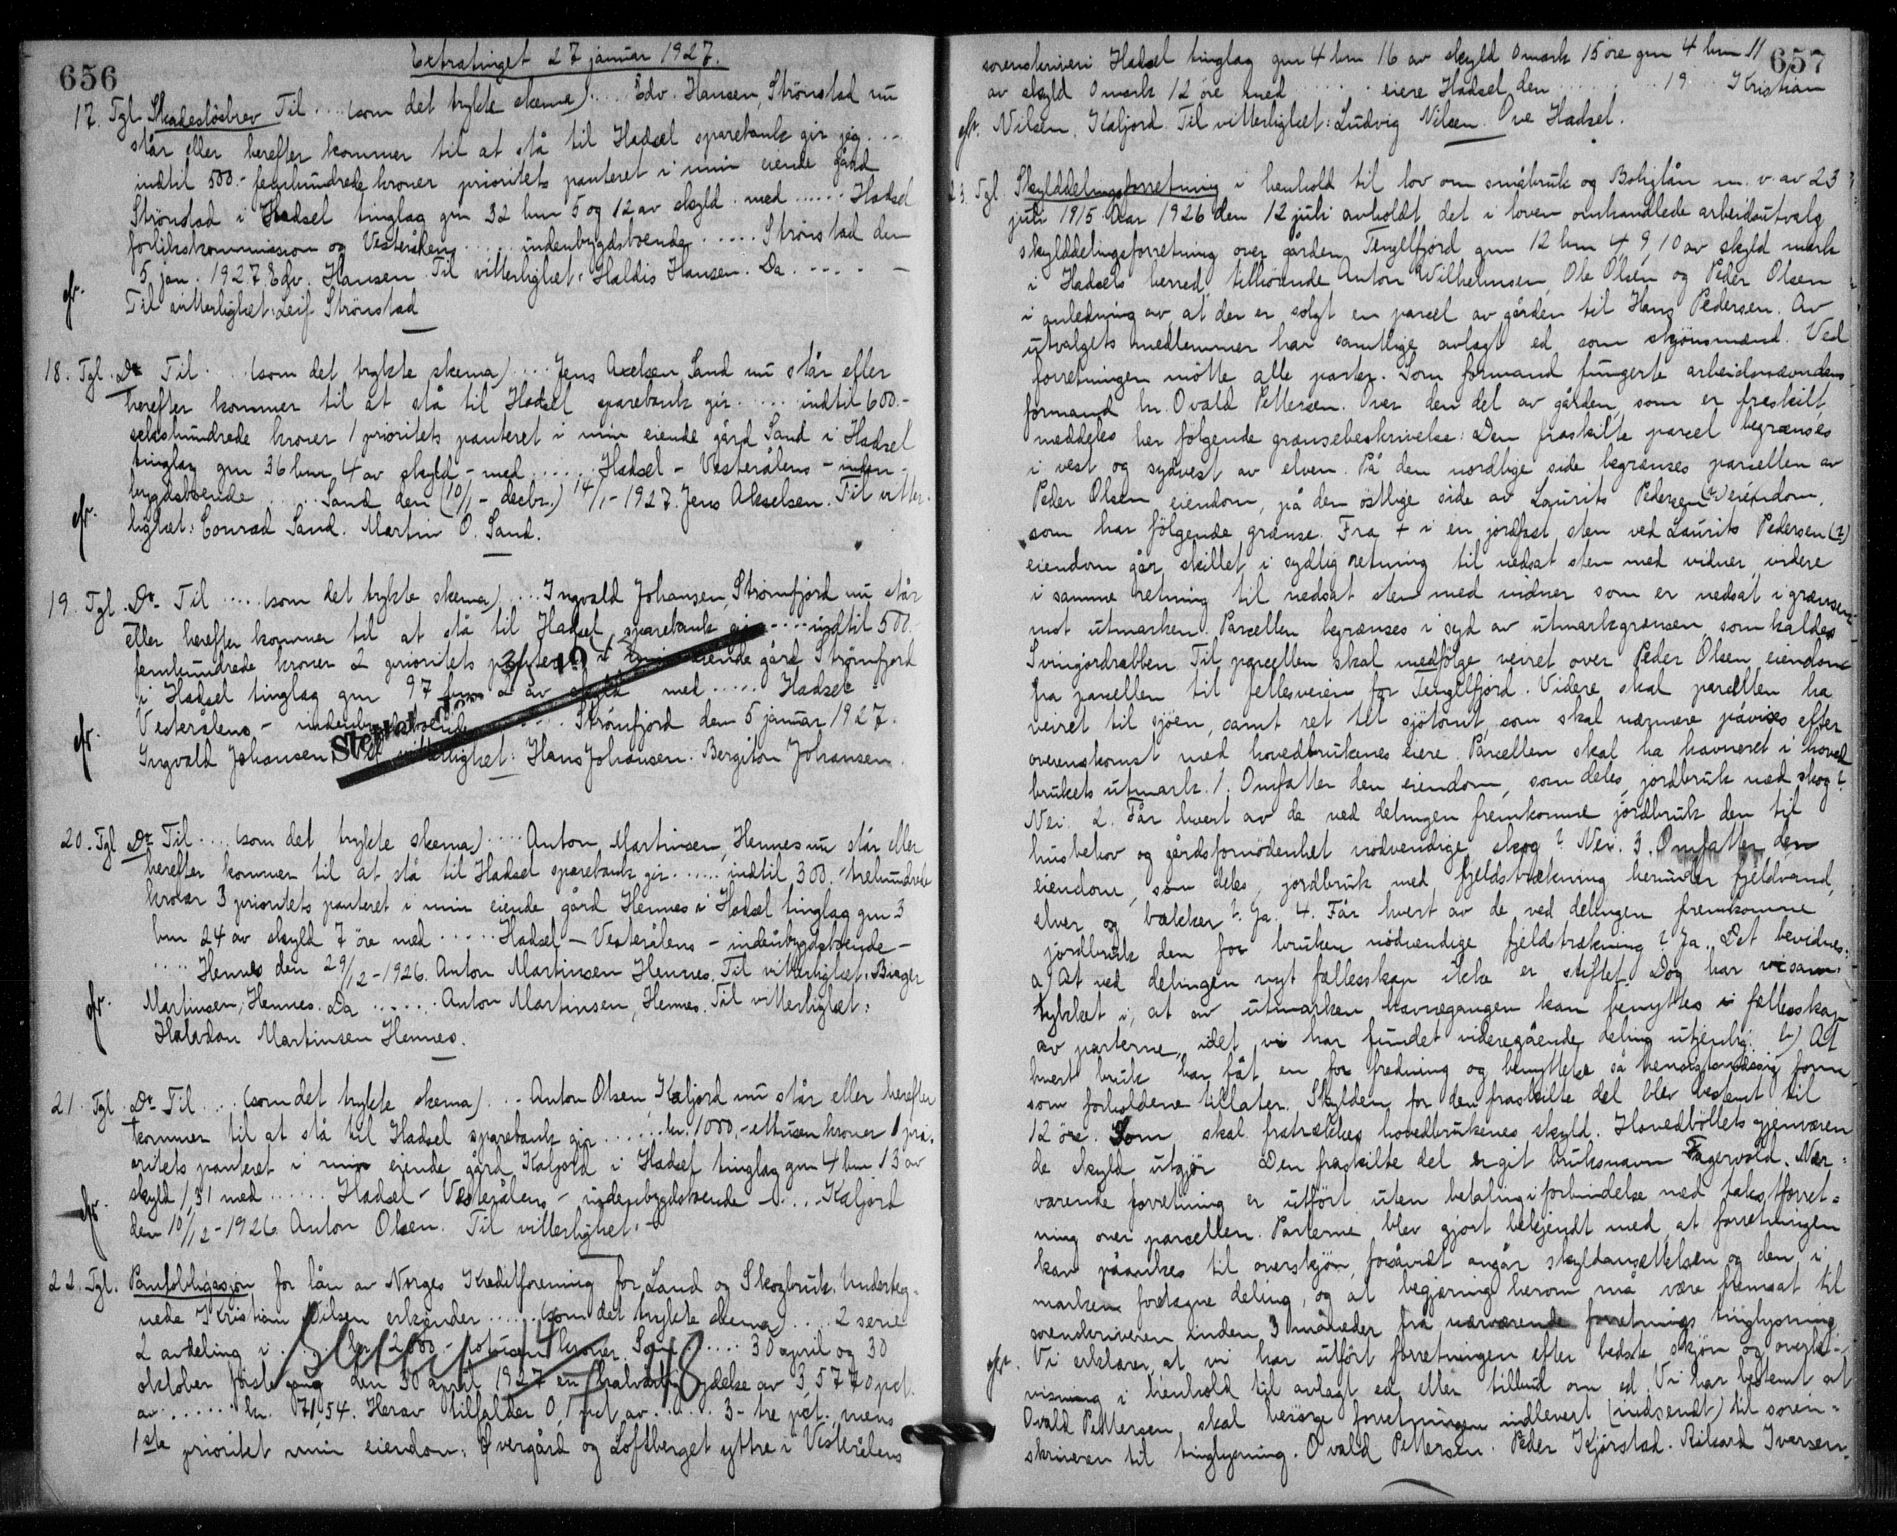 656
Extratinget 27 januar 1927.
17. Tgl. Skadesløsbrev Til .... (som det trykte skema) .... Edv. Hansen, Strönstad nu
står eller herefter kommer til at stå til Hadsel sparebank gir jeg ....
indtil 500.- femhundrede kroner prioritets panteret i min eiende gård
Strönstad i Hadsel tinglag gnr 32 bnr 5 og 12 av skyld . med ...... Hadsel
forlikskommission og Vesterålens ..... indenbygdsboende ...... Strönstad den
5 jan. 1927. Edv. Hansen. Til vitterlighet: Haldis Hansen. Da ..... -
Til vitterlighet: Leif Strönstad
18. Tgl. Do Til .... (som det trykte skema) .... Jens Axelsen Sand nu står eller
herefter kommer til at stå til Hadsel sparebank gir ...... indtil 600.-
sekshundrede kroner 1 prioritets panteret i min eiende gård Sand i Hadsel
tinglag gnr 36 bnr 4 av skyld - med ...... Hadsel - Vesterålens - inden-
bygdsboende ...... Sand den (10/1 - decbr.) 14/1 - 1927. Jens Akselsen. Til vitter-
lighet: Conrad Sand. Martin O. Sand.
19. Tgl. Do Til .... (som det trykte skema) .... Ingvald Johansen, Strömfjord nu står
eller herefter kommer til at stå til Hadsel sparebank gir .... indtil 500.
femhundrede kroner 2 prioritets panteret i min eiende gård Strömfjord
i Hadsel tinglag gnr 97 bnr 2 av skyld med ..... Hadsel -
Vesterålens - indenbygdsboende ...... Strömfjord den 5 januar 1927.
Ingvald Johansen Til vitterlighet: Hans Johansen. Bergiton Johansen.
20. Tgl. Do Til .... (som det trykte skema) .... Anton Martinsen, Hennes nu står eller
herefter kommer til at stå til Hadsel sparebank gir ...... indtil 300.- trehundrede
kroner 3 prioritets panteret i min eiende gård Hennes i Hadsel tinglag gnr 3
bnr 24 av skyld 7 öre med ..... Hadsel - Vesterålens - indenbygdsboende -
..... Hennes den 29/12 - 1926. Anton Martinsen Hennes. Til vitterlighet: Birger
Martinsen, Hennes. Da ...... Anton Martinsen, Hennes. Til vitterlighet:
Halvdan Martinsen Hennes.
21. Tgl. Do Til .... (som det trykte skema) ... Anton Olsen, Kaljord nu står eller herefter
kommer til at stå til Hadsel sparebank gir ...... kr. 1000,- ettusen kroner 1 pri-
oritets panteret i min eiende gård Kaljord i Hadsel tinglag gnr 4 bnr 13 av
skyld 1,31 med ...... Hadsel - Vesterålens - indenbygdsboende - .... Kaljord
den 10/12 - 1926 Anton Olsen. Til vitterlighet: -
22. Tgl. Pantobligasjon for lån av Norges Kreditforening for Land og Skogbruk. Underteg-
nede Kristian Nilsen erkjender ...... (som det trykte skema) .... 2 serie
2 avdeling i ..... kr. 2000.- totusen kroner. Som ..... 30 april og 30
oktober første gang den 30 april 1927 en halvårlig ydelse av 3,5770 pct.
av ....... kr. 71,54. Herav tilfalder 0,1 pct av ..... 3 - tre pct. mens
1ste prioritet min eiendom: Övergård og Loftberget yttre i Vesterålens
657
sorenskriveri Hadsel tinglag gnr 4 bnr 16 av skyld 0 mark 15 öre gnr 4 bnr 11
av skyld 0 mark 12 öre med ...... eiere Hadsel den ....... 19.. Kristian
Nilsen, Kaljord. Til vitterlighet: Ludvig Nilsen. Ove Hadsel.
23. Tgl. Skylddelingsforretning i henhold til lov om småbruk og Boliglån m. v. av 23
juli 1915. Aar 1926 den 12 juli avholdt det i loven omhandlede arbeidsutvalg
skylddelingsforretning over gården Tengelfjord gnr 12 bnr 4, 9, 10 av skyld mark
i Hadsels herred, tilhörende Anton Wilhelmsen, Ole Olsen og Peder Olsen
i anledning av, at der er solgt en parcel av gården til Hans Pedersen. Av
utvalgets medlemmer har samtlige avlagt ed som skjönsmænd. Ved
forretningen mötte alle parter. Som formand fungerte arbeidsnævndens
formand hr. Ovald Pettersen. Over den del av gården, som er fraskilt,
meddeles her fölgende grænsebeskrivelse: Den fraskilte parcel begrænses
i vest og sydvest av elven. På den nordlige side begrænses parcellen av
Peder Olsen eiendom, på den östlige side av Laurits Pedersen (?) eiendom,
som har fölgende grænse. Fra + i en jordfast sten ved Laurits Pedersen (?)
eiendom går skillet i sydlig retning til nedsat sten med vidner, videre
i samme retning til nedsat sten med vidner som er nedsat i grænsen
mot utmarken. Parcellen begrænses i syd av utmarksgrænsen som kaldes
Svingjordrabben. Til parcellen skal medfölge veiret over Peder Olsen eiendom
fra parcellen til fellesveien for Tengelfjord. Videre skal parcellen ha
veiret til sjöen, samt ret til sjötomt, som skal nærmere påvises efter
overenskomst med hovedbrukenes eiere. Parcellen skal ha havneret i hoved
brukets utmark. 1. Omfatter den eiendom, som deles, jordbruk med skog?
Nei. 2. Får hvert av de ved delingen fremkomne jordbruk den til
husbehov og gårdsfornödenhet nödvendige skog? Nei. 3. Omfatter den
eiendom, som deles, jordbruk med fjeldstrækning herunder fjeldvand,
elver og bækker? Ja. 4. Får hvert av de ved delingen fremkomne
jordbruk den for bruken nödvendige fjeldstrækning? Ja. Det bevidnes:
a) At ved delingen nyt fællesskap ikke er stiftet. Dog har vi sam-
tykket i, at av utmarken havnegangen kan benyttes i fællesskap
av parterne, idet vi har fundet videregående deling utjenlig. b) At
hvert bruk har fåt en for fredning og benyttelse så hensigtsmæssig form
som forholdene tillater. Skylden for den fraskilte del blev bestemt til
12 öre. Som skal fratrækkes hovedbrukenes skyld. Hovedböllets gjenværen
de skyld utgjör Den fraskilte del er git bruksnavn Fagervold. Nær-
værende forretning er utfört uten betaling i forbindelse med takstforret-
ning over parcellen. Parterne blev gjort bekjendt med, at forretningen
kan påankes til overskjön, forsåvidt angår skyldansettelsen og den i
marken foretagne deling, og at begjæring herom må være fremsat til
sorenskriveren inden 3 måneder fra nærværende forretnings tinglysning
Vi erklærer, at vi har utfört forretningen efter bedste skjön og overbe-
visning i henhold til avlagt ed eller tilbud om ed. Vi har bestemt at
Ovald Pettersen skal besörge forretningen indlevert (indsendt) til soren-
skriveren til tinglysning. Ovald Pettersen. Peder Kjörstad. Rikard Iversen.